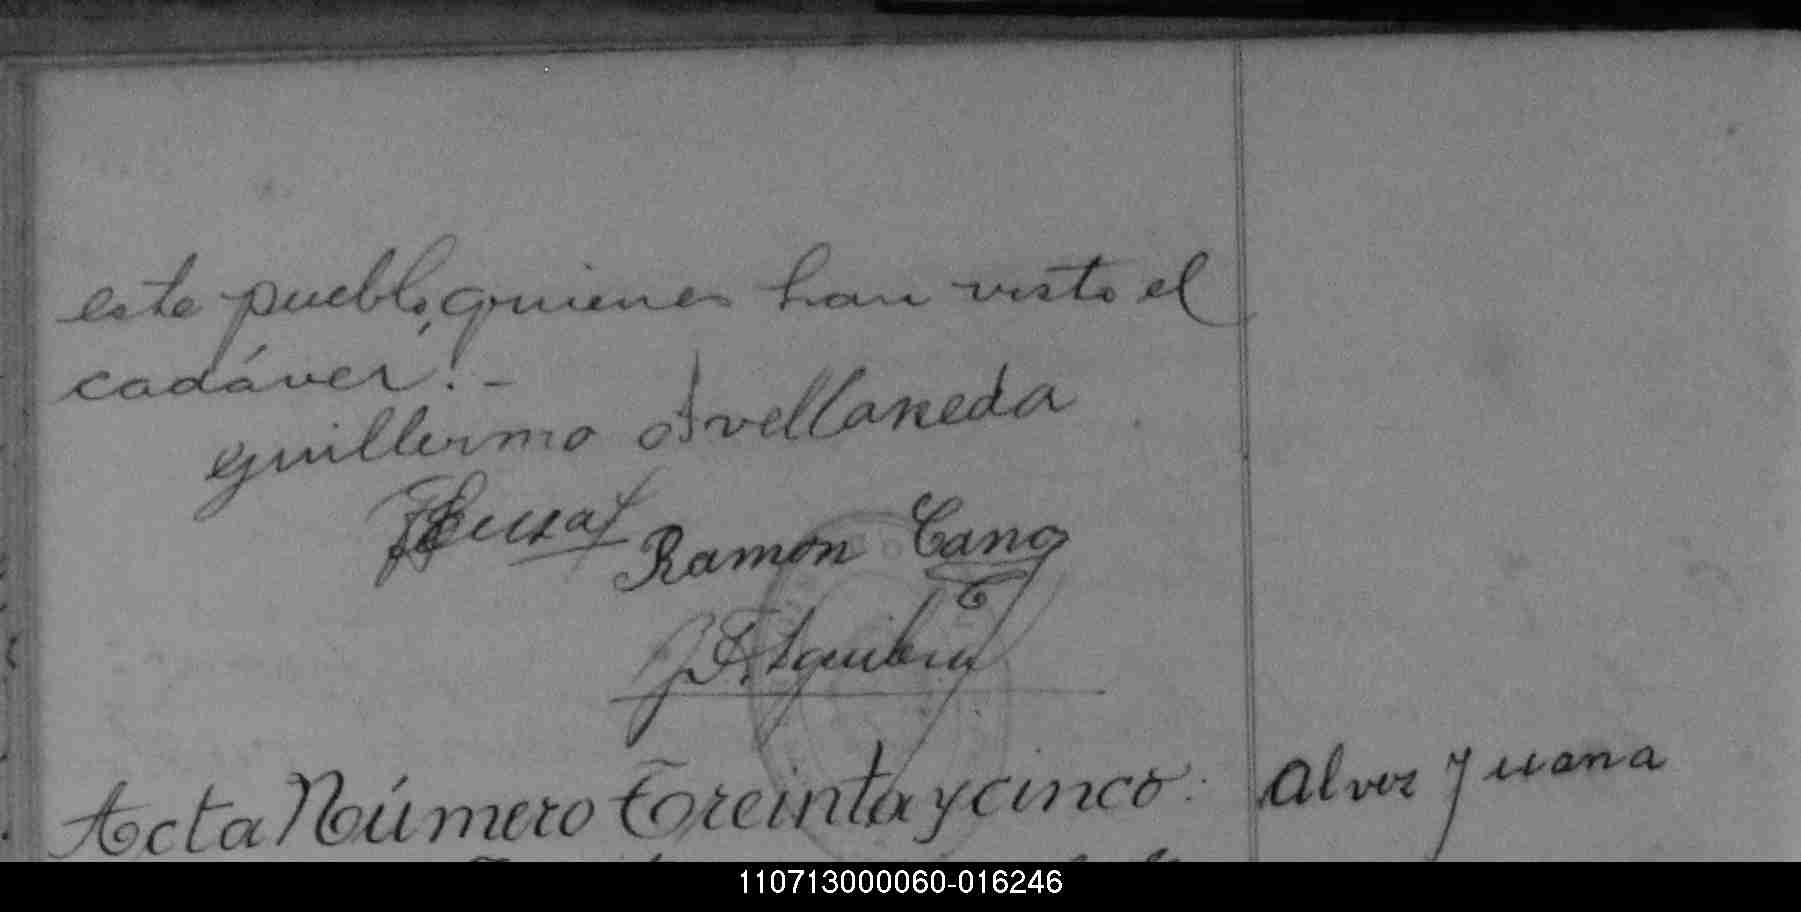 este pueblo, quienes han visto el
cadáver.-
Guillermo Avellaneda
Ramon Cano
Acta Número Treinta y cinco. Alvez Juana
110713000060-016246